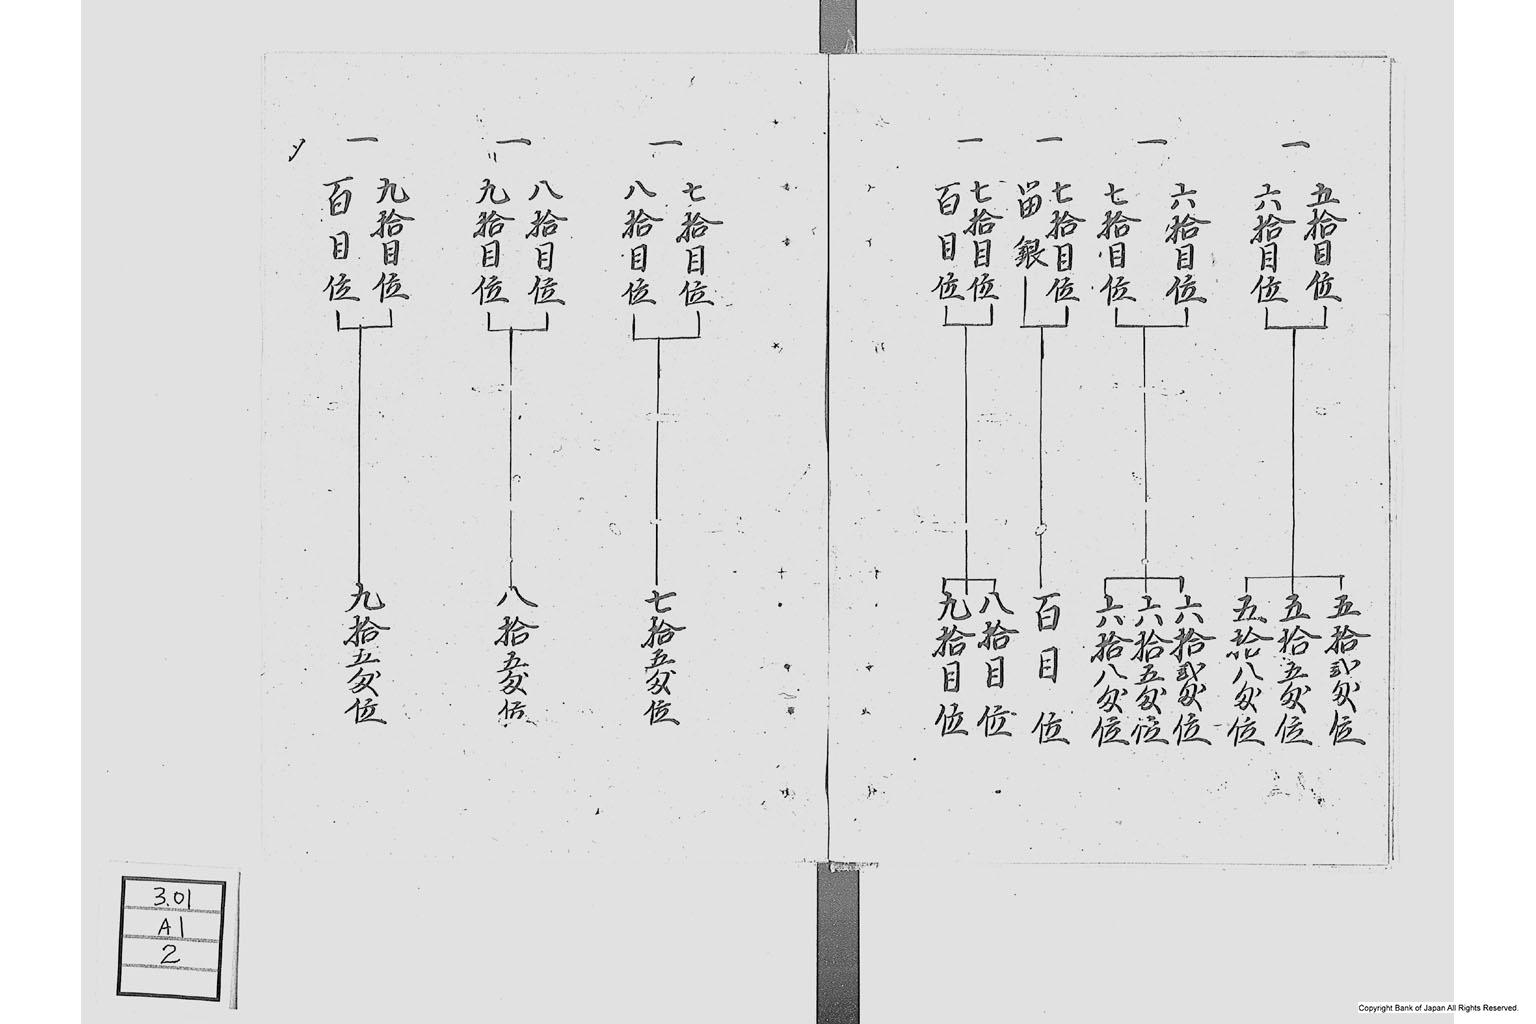 一
五拾目位
六拾目位
五拾弐匁位
五拾五匁位
五拾八匁位
一
六拾目位
七拾目位
六拾弐匁位
六拾五匁位
六拾八匁位
一
七拾目位
留銀
百目位
一
七拾目位
百目位
八拾目位
九拾目位
一
七拾目位
八拾目位
七拾五匁位
一
八拾目位
九拾目位
八拾五匁位
一
九拾目位
百目位
九拾五匁位
3.01
A1
2
Copyright Bank of Japan All Rights Reserved.